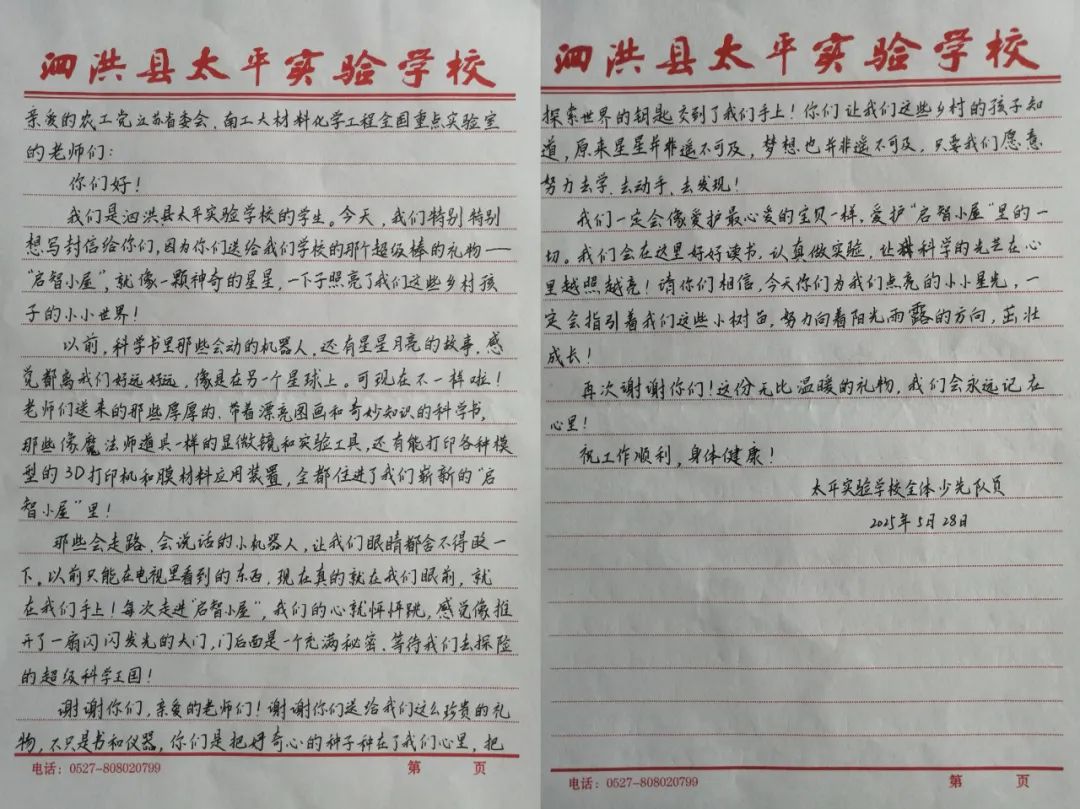 泗洪县太平实验学校
亲爱的农工党江苏省委会、南工大材料化学工程全国重点实验室
的老师们:
你们好!
我们是泗洪县太平实验学校的学生。今天,我们特别特别
想写封信给你们,因为你们送给我们学校的那个超级棒的礼物——
“启智小屋”,就像一颗神奇的星星,一下子照亮了我们这些乡村孩
子的小小世界!
以前,科学书里那些会动的机器人,还有星星月亮的故事,感
觉都离我们好远好远,像是在另一个星球上。可现在不一样啦!
老师们送来的那些厚厚的、带着漂亮图画和奇妙知识的科学书,
那些像魔法师道具一样的显微镜和实验工具,还有能打印各种模
型的3D打印机和膜材料应用装置,全都住进了我们崭新的“启
智小屋”里!
那些会走路、会说话的小机器人,让我们眼睛都舍不得眨一
下。以前只能在电视里看到的东西,现在真的就在我们眼前,就
在我们手上!每次走进“启智小屋”,我们的心就怦怦跳,感觉像推
开了一扇闪闪发光的大门,门后面是一个充满秘密、等待我们去探险
的超级科学王国!
谢谢你们,亲爱的老师们!谢谢你们送给我们这么珍贵的礼
物,不只是书和仪器,你们是把好奇心的种子种在了我们心里,把
电话:0527-808020799 第 页
泗洪县太平实验学校
探索世界的钥匙交到了我们手上!你们让我们这些乡村的孩子知
道,原来星星并非遥不可及,梦想也并非遥不可及,只要我们愿意
努力去学、去动手、去发现!
我们一定会像爱护最心爱的宝贝一样,爱护“启智小屋”里的一
切。我们会在这里好好读书,认真做实验,让科学的光芒在心
里越照越亮!请你们相信,今天你们为我们点亮的小小星光,一
定会指引着我们这些小树苗,努力向着阳光雨露的方向,茁壮
成长!
再次谢谢你们!这份无比温暖的礼物,我们会永远记在
心里!
祝工作顺利,身体健康!
太平实验学校全体少先队员
2025年5月28日
电话:0527-808020799 第 页